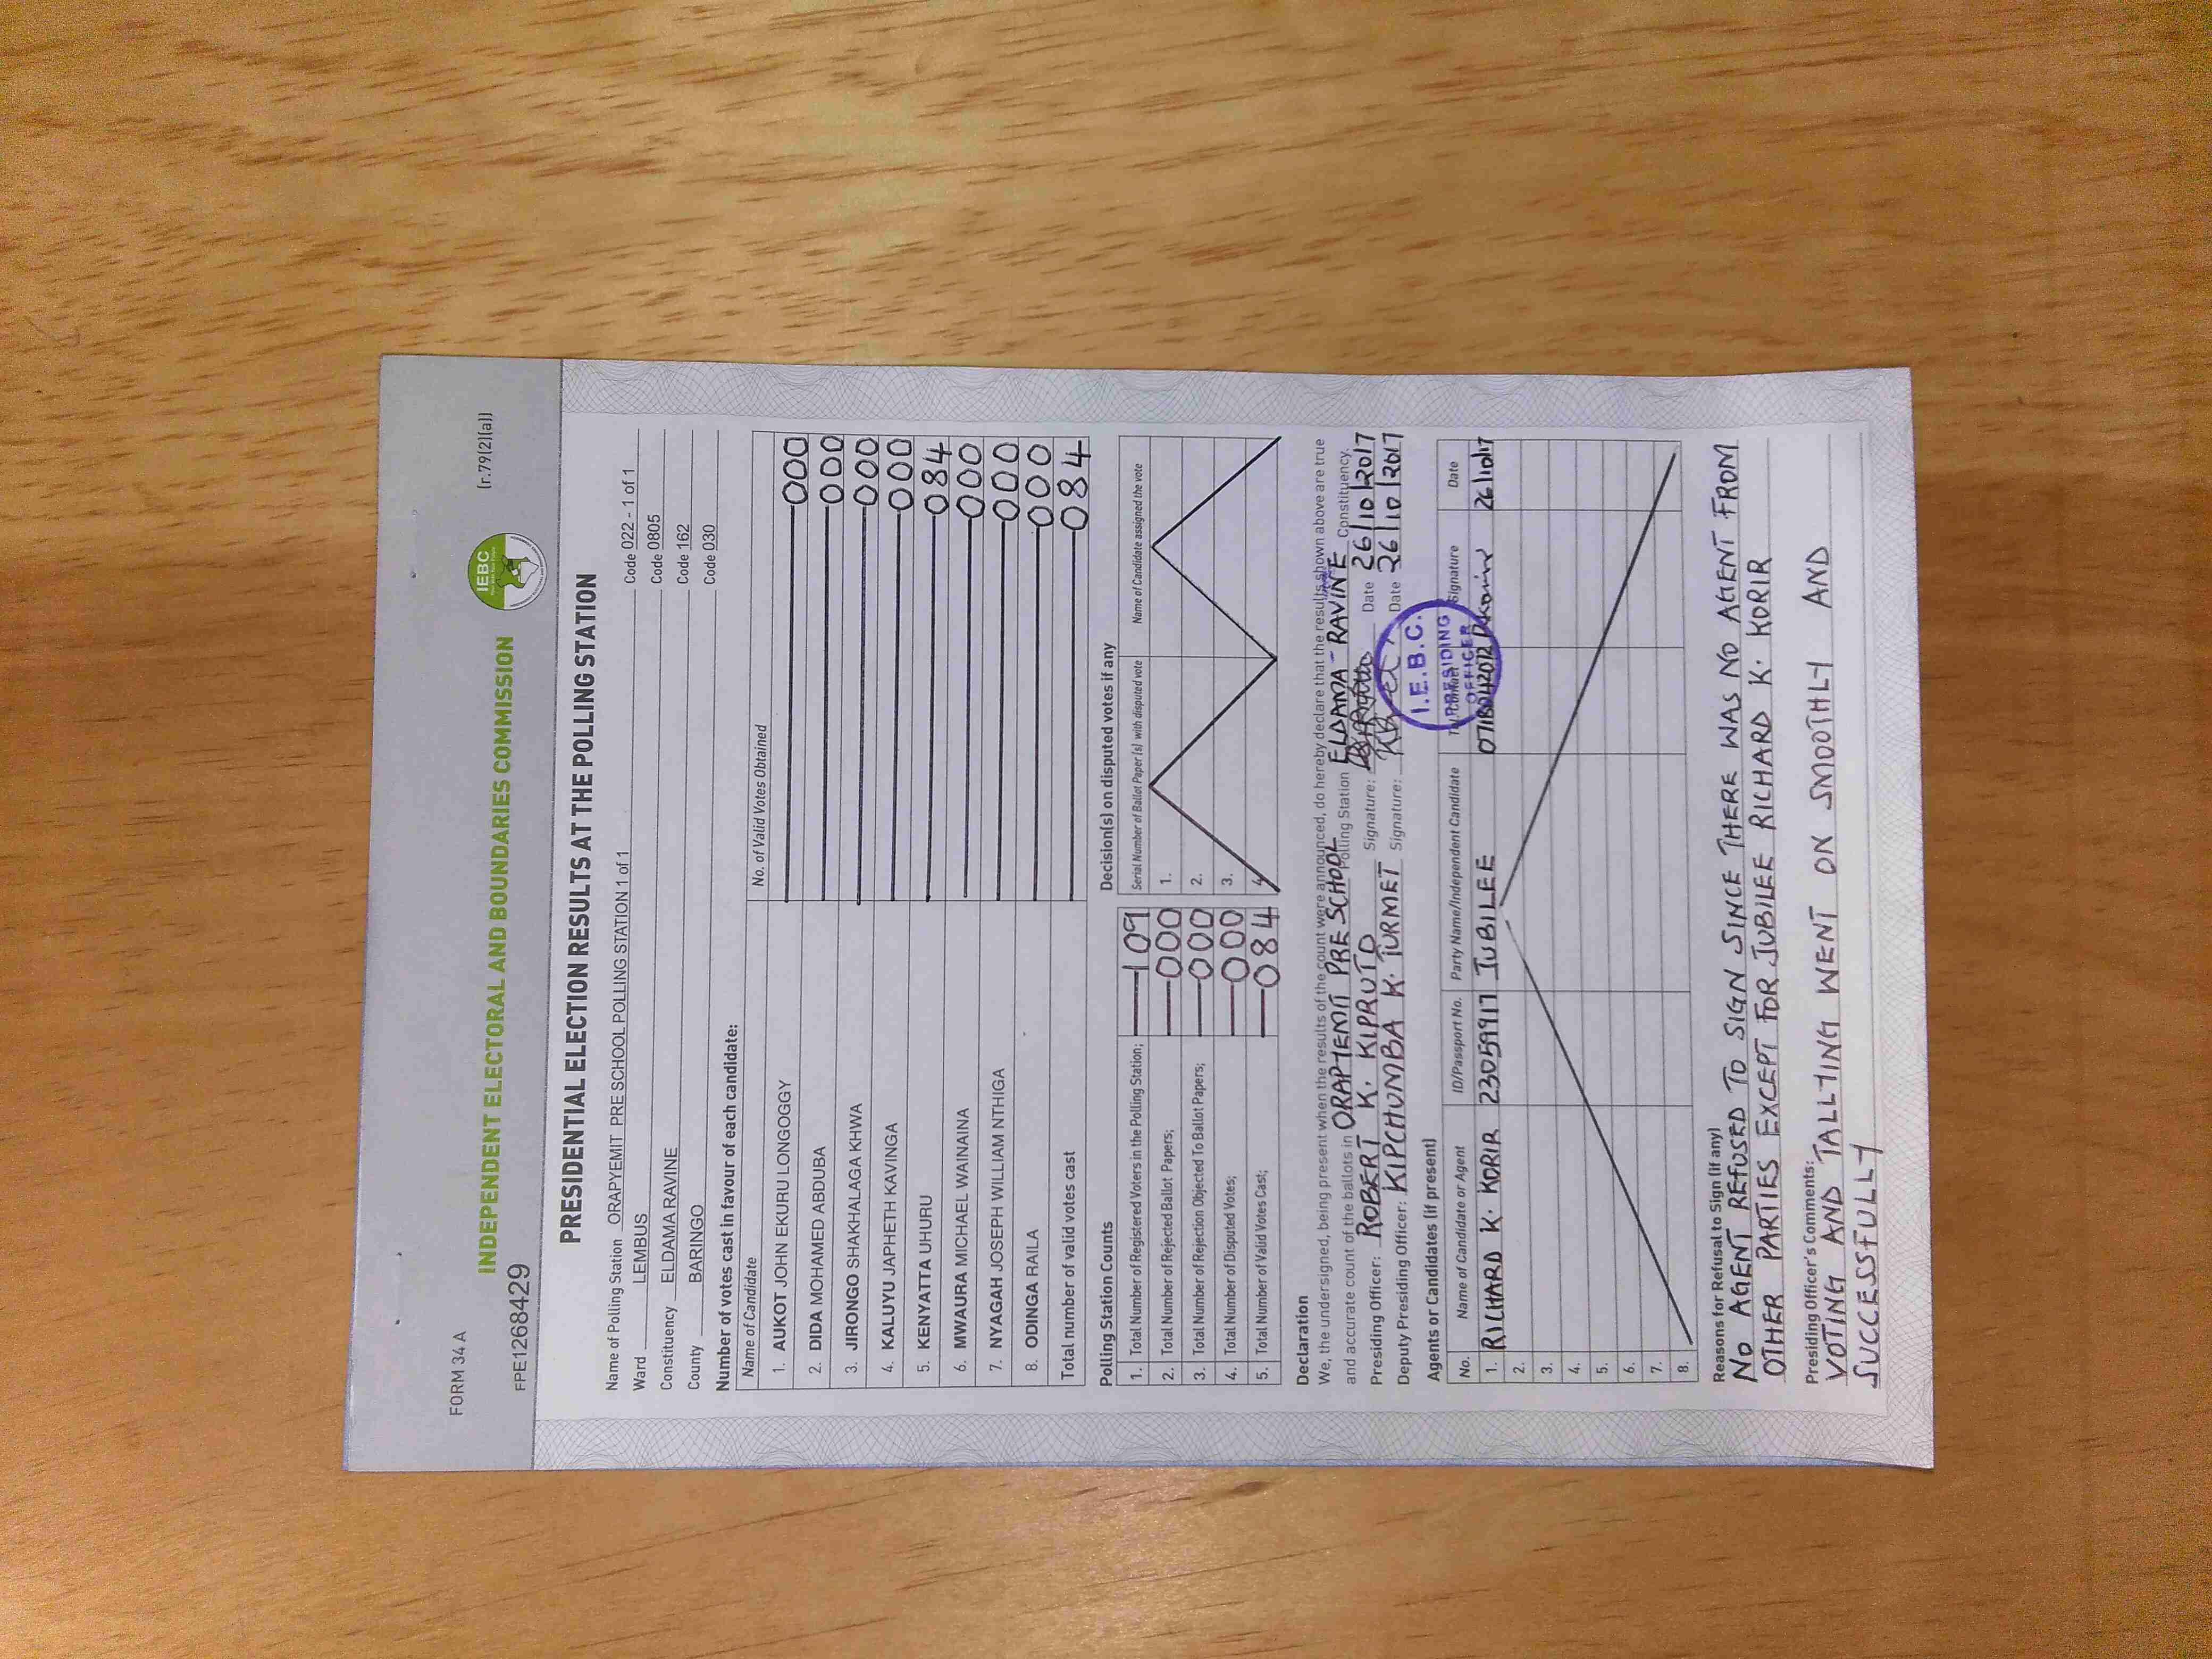 FORM 34 A
INDEPENDENT ELECTORAL AND BOUNDARIES COMMISSION
IEBC
(r.79(2)(a))
FPE1268429
PRESIDENTIAL ELECTION RESULTS AT THE POLLING STATION
Name of Polling Station ORAPYEMIT PRE SCHOOL POLLING STATION 1 of 1 Code 022 - 1 of 1
Ward LEMBUS Code 0805
Constituency ELDAMA RAVINE Code 162
County BARINGO Code 030
Number of votes cast in favour of each candidate:
Name of Candidate No. of Valid Votes Obtained
1. AUKOT JOHN EKURU LONGOGGY 000
2. DIDA MOHAMED ABDUBA 000
3. JIRONGO SHAKHALAGA KHWA 000
4. KALUYU JAPHETH KAVINGA 000
5. KENYATTA UHURU 084
6. MWAURA MICHAEL WAINAINA 000
7. NYAGAH JOSEPH WILLIAM NTHIGA 000
8. ODINGA RAILA 000
Total number of valid votes cast 084
Polling Station Counts
1. Total Number of Registered Voters in the Polling Station; 109
2. Total Number of Rejected Ballot Papers; 000
3. Total Number of Rejection Objected To Ballot Papers; 000
4. Total Number of Disputed Votes; 000
5. Total Number of Valid Votes Cast; 084
Decision(s) on disputed votes if any
Serial Number of Ballot Paper (s) with disputed vote Name of Candidate assigned the vote
1.
2.
3.
4.
Declaration
We, the undersigned, being present when the results of the count were announced, do hereby declare that the results shown above are true
and accurate count of the ballots in ORAPYEMIT PRE SCHOOL Polling Station ELDAMA-RAVINE Constituency.
Presiding Officer: ROBERT K. KIPRUTO Signature: Date 26/10/2017
Deputy Presiding Officer: KIPCHUMBA K. TURMET Signature: Date 26/10/2017
I.E.B.C.
PRESIDING
OFFICER
Agents or Candidates (if present)
No. Name of Candidate or Agent ID/Passport No. Party Name/Independent Candidate Signature Date
1. RICHARD K. KORIR 23059917 JUBILEE 26/10/17
2.
3.
4.
5.
6.
7.
8.
Reasons for Refusal to Sign (if any)
NO AGENT REFUSED TO SIGN SINCE THERE WAS NO AGENT FROM
OTHER PARTIES EXCEPT FOR JUBILEE RICHARD K. KORIR
Presiding Officer's Comments:
VOTING AND TALLYING WENT ON SMOOTHLY AND
SUCCESSFULLY